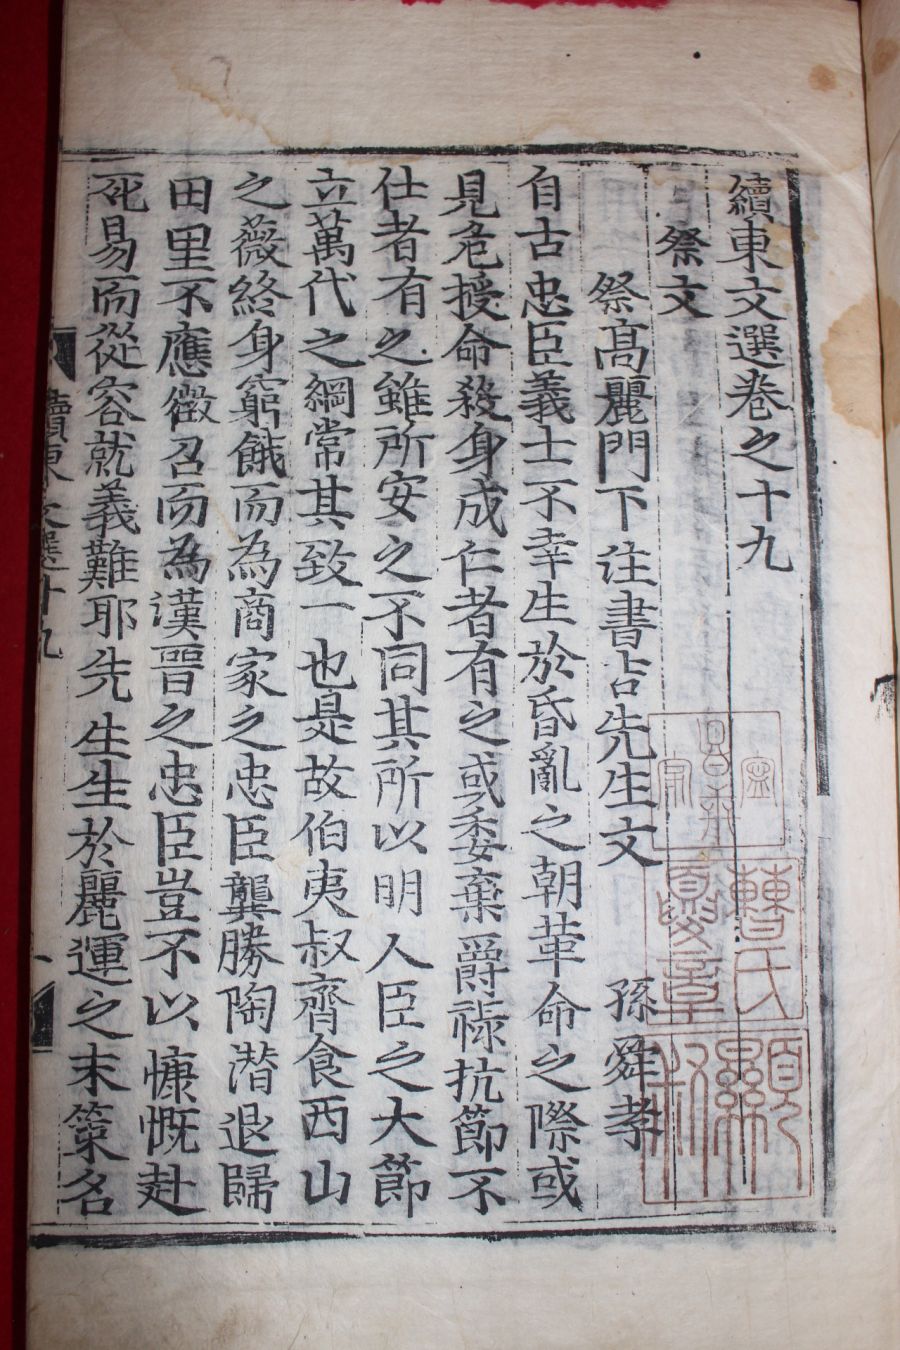 續東文選卷之十九
祭文
祭髙麗門下注書吉先生文 孫舜孝
自古忠臣義士不幸生於昏亂之朝革命之際或
見危授命殺身成仁者有之或委棄爵祿抗節不
仕者有之雖所安之不同其所以明人臣之大節
立萬代之綱常其致一也是故伯夷叔齊食西山
之薇終身窮餓而為商家之忠臣龔勝陶潜退歸
田里不應徵召而為漢晉之忠臣豈不以慷慨赴
死易而從容就義難耶先生生於麗運之末策名
續東文選十九
曹氏